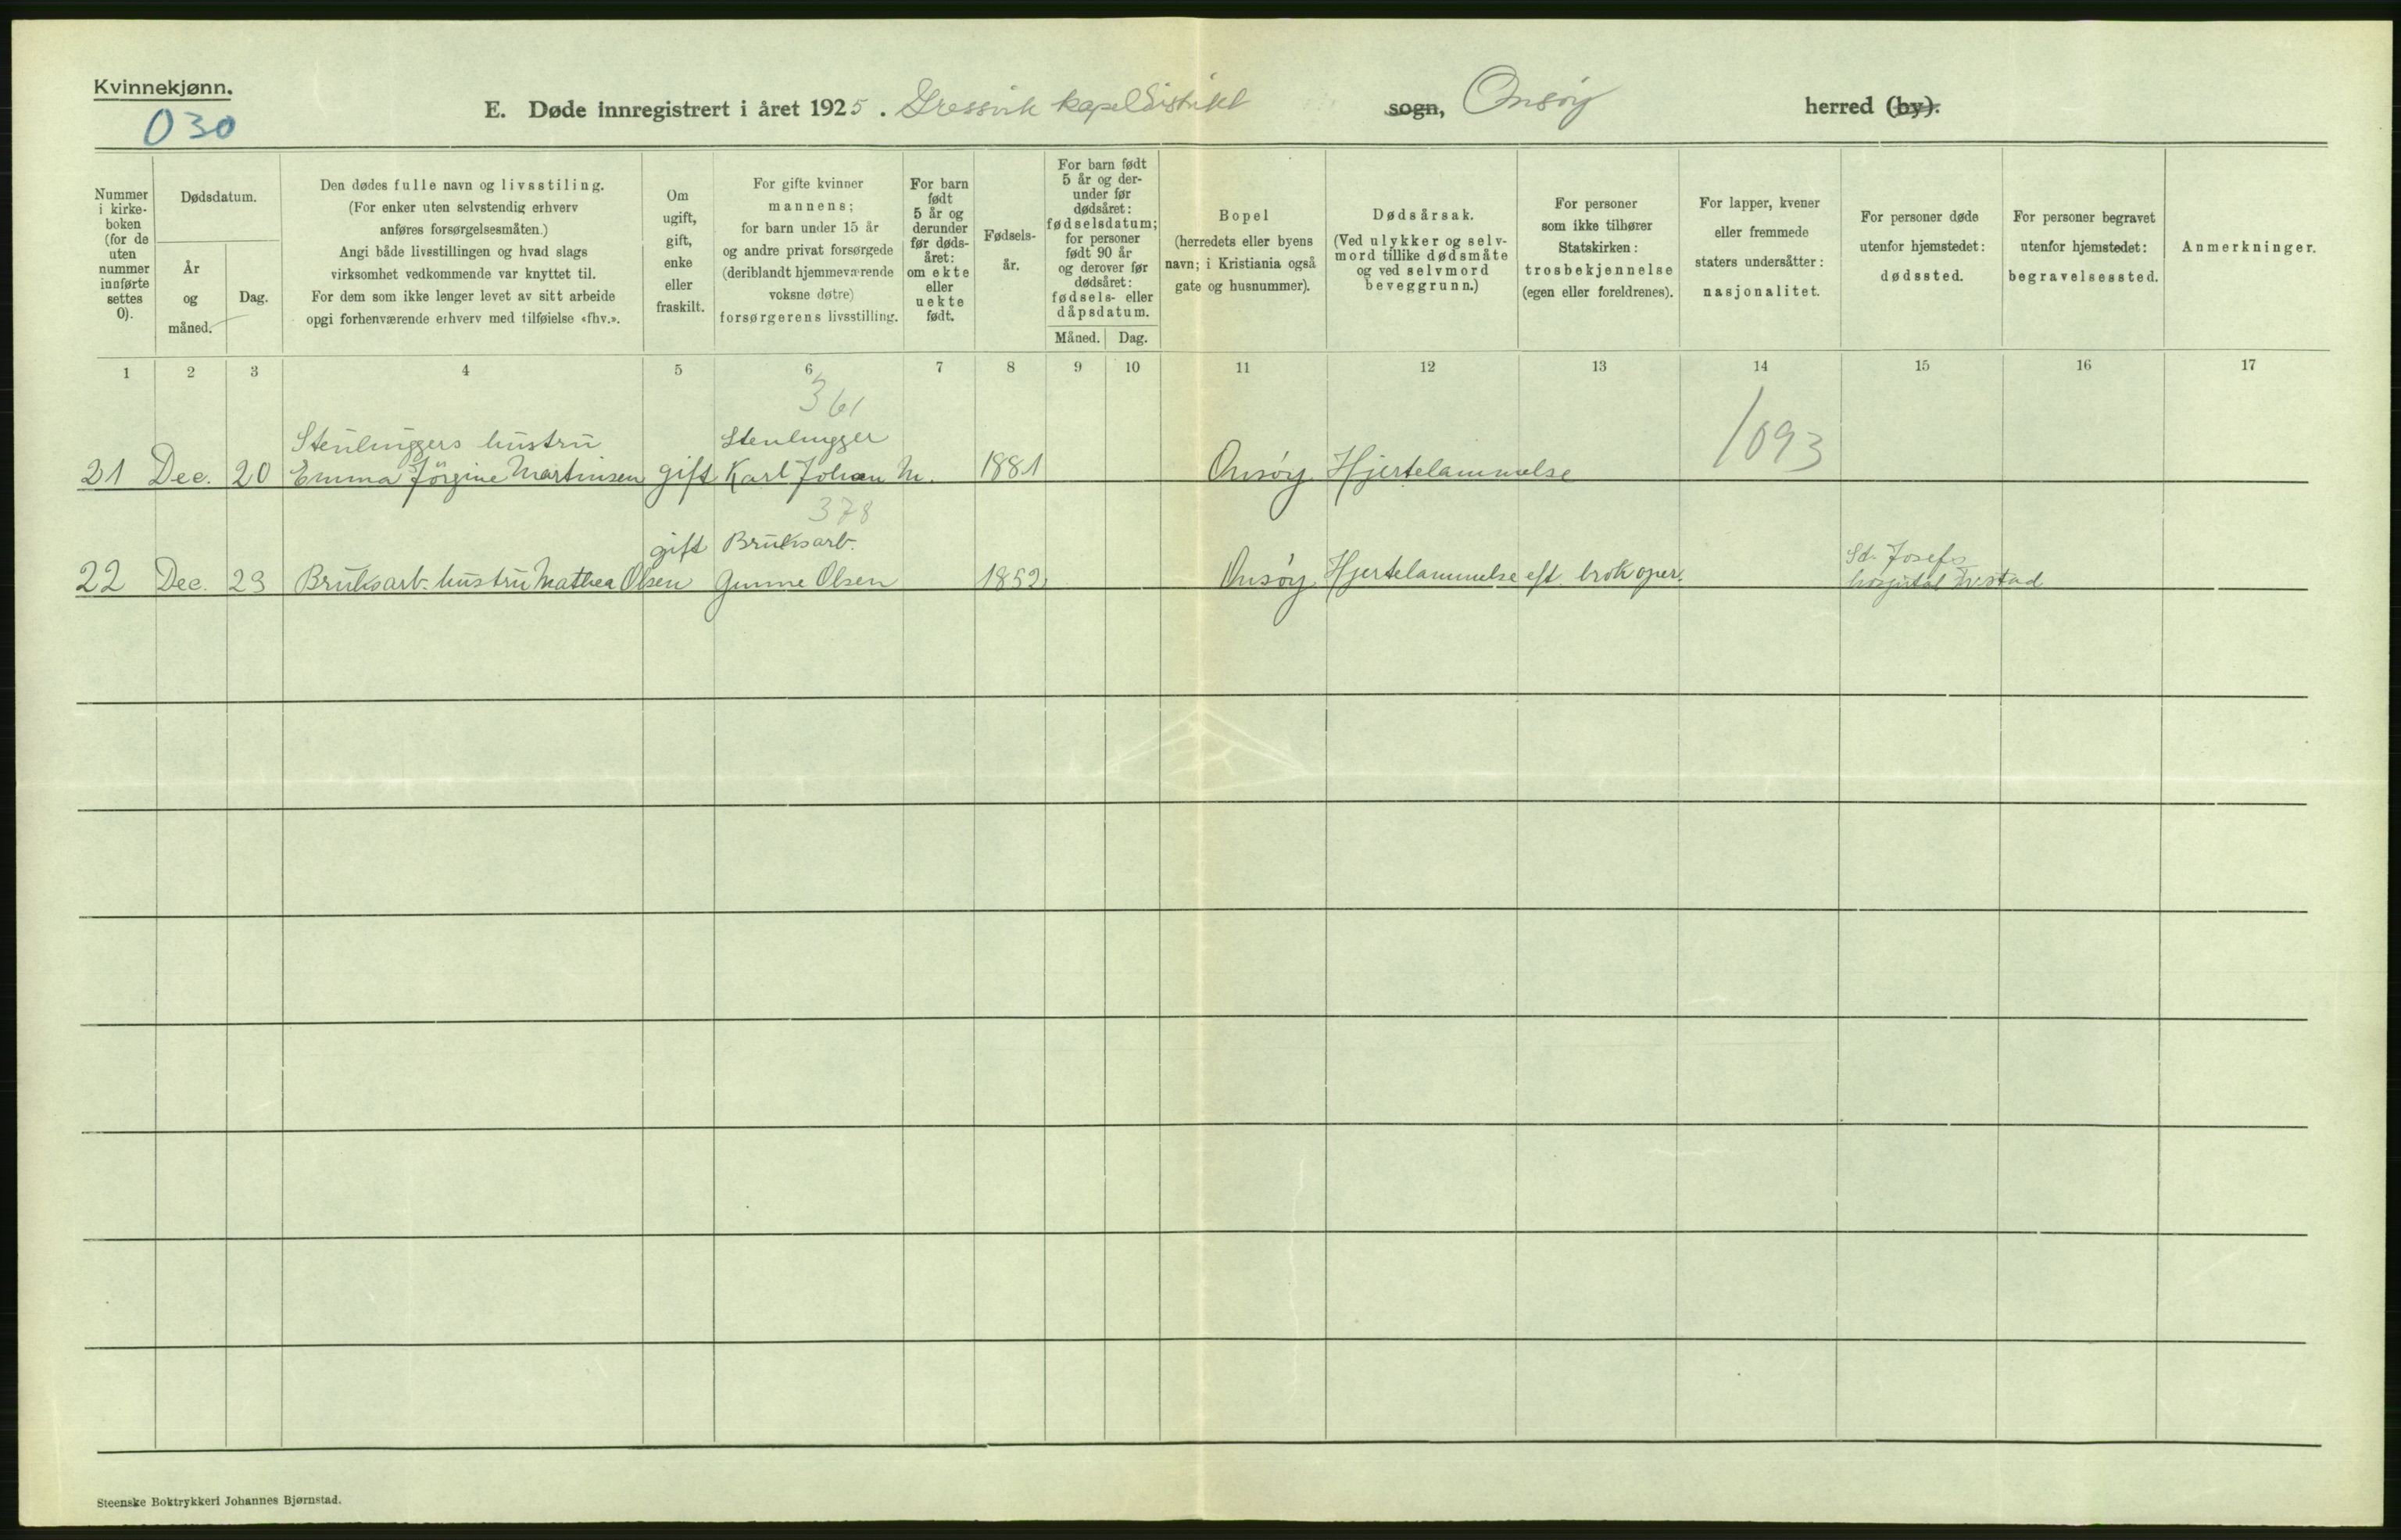 Kvinnekjønn.
030
E. Døde innregistrert i året 1925. Gressvik kapeldistrikt sogn, Onsøy herred (by).
Nummer i kirke- boken (for de uten nummer innførte settes 0).
Dødsdatum.
År og måned.
Dag.
Den dødes fulle navn og livsstiling.
(For enker uten selvstendig erhverv
anføres forsørgelsesmåten.)
Angi både livsstillingen og hvad slags
virksomhet vedkommende var knyttet til.
For dem som ikke lenger levet av sitt arbeide
opgi forhenværende erhverv med tilføielse «fhv.».
Om
ugift,
gift,
enke
eller
fraskilt.
For gifte kvinner
mannens;
for barn under 15 år
og andre privat forsørgede
(deriblandt hjemmeværende
voksne døtre)
forsørgerens livsstilling.
For barn
født
5 år og
derunder
før døds-
året:
om ekte
eller
uekte
født.
Fødsels-
år.
For barn født
5 år og der-
under før
dødsåret:
fødselsdatum;
for personer
født 90 år
og derover før
dødsåret:
fødsels- eller
dåpsdatum.
Måned. Dag.
Bopel
(herredets eller byens
navn; i Kristiania også
gate og husnummer).
Dødsårsak.
(Ved ulykker og selv-
mord tillike dødsmåte
og ved selvmord
beveggrunn.)
For personer
som ikke tilhører
Statskirken:
trosbekjennelse
(egen eller foreldrenes).
For lapper, kvener
eller fremmede
staters undersåtter:
nasjonalitet.
For personer døde
utenfor hjemstedet:
dødssted.
For personer begravet
utenfor hjemstedet:
begravelsessted.
Anmerkninger.
1 2 3 4 5 6 7 8 9 10 11 12 13 14 15 16 17
361
1093
Stenhuggers hustru Stenhugger
21 Dec. 20 Emma Jörgine Martinsen gift Karl Johan M. 1881 Onsöy Hjertelammelse
378
gift Bruksarb. St. Josefs
22 Dec. 23 Bruksarb. hustru Mathea Olsen Gunne Olsen 1852 Onsöy Hjertelammelse eft. brokoper. hospital Frestad
Steenske Boktrykkeri Johannes Bjørnstad.